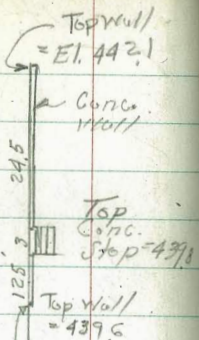 Top Wall
= El. 442.1
Conc.
Wall
24.5
Top
Conc.
Step = 439.8
3
125
Top Wall
= 439.6